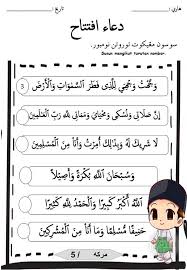 هاري : تاريخ :
دعاء افتتاح
سوسون مڠيكوت تورونن نومبور.
Susun mengikut turutan nombor.
وَجَّهْتُ وَجْهِيَ لِلَّذِي فَطَرَ السَّمَوَاتِ وَالْأَرْضَ 3
إِنَّ صَلَاتِي وَنُسُكِي وَمَحْيَايَ وَمَمَاتِي لِلَّهِ رَبِّ الْعَالَمِينَ
لَا شَرِيكَ لَهُ وَبِذَلِكَ أُمِرْتُ وَأَنَا مِنَ الْمُسْلِمِينَ
وَسُبْحَانَ اللَّهِ بُكْرَةً وَأَصِيلًا
اللَّهُ أَكْبَرُ كَبِيرًا وَالْحَمْدُ لِلَّهِ كَثِيرًا
حَنِيفًا مُسْلِمًا وَمَا أَنَا مِنَ الْمُشْرِكِينَ
مركه / 5